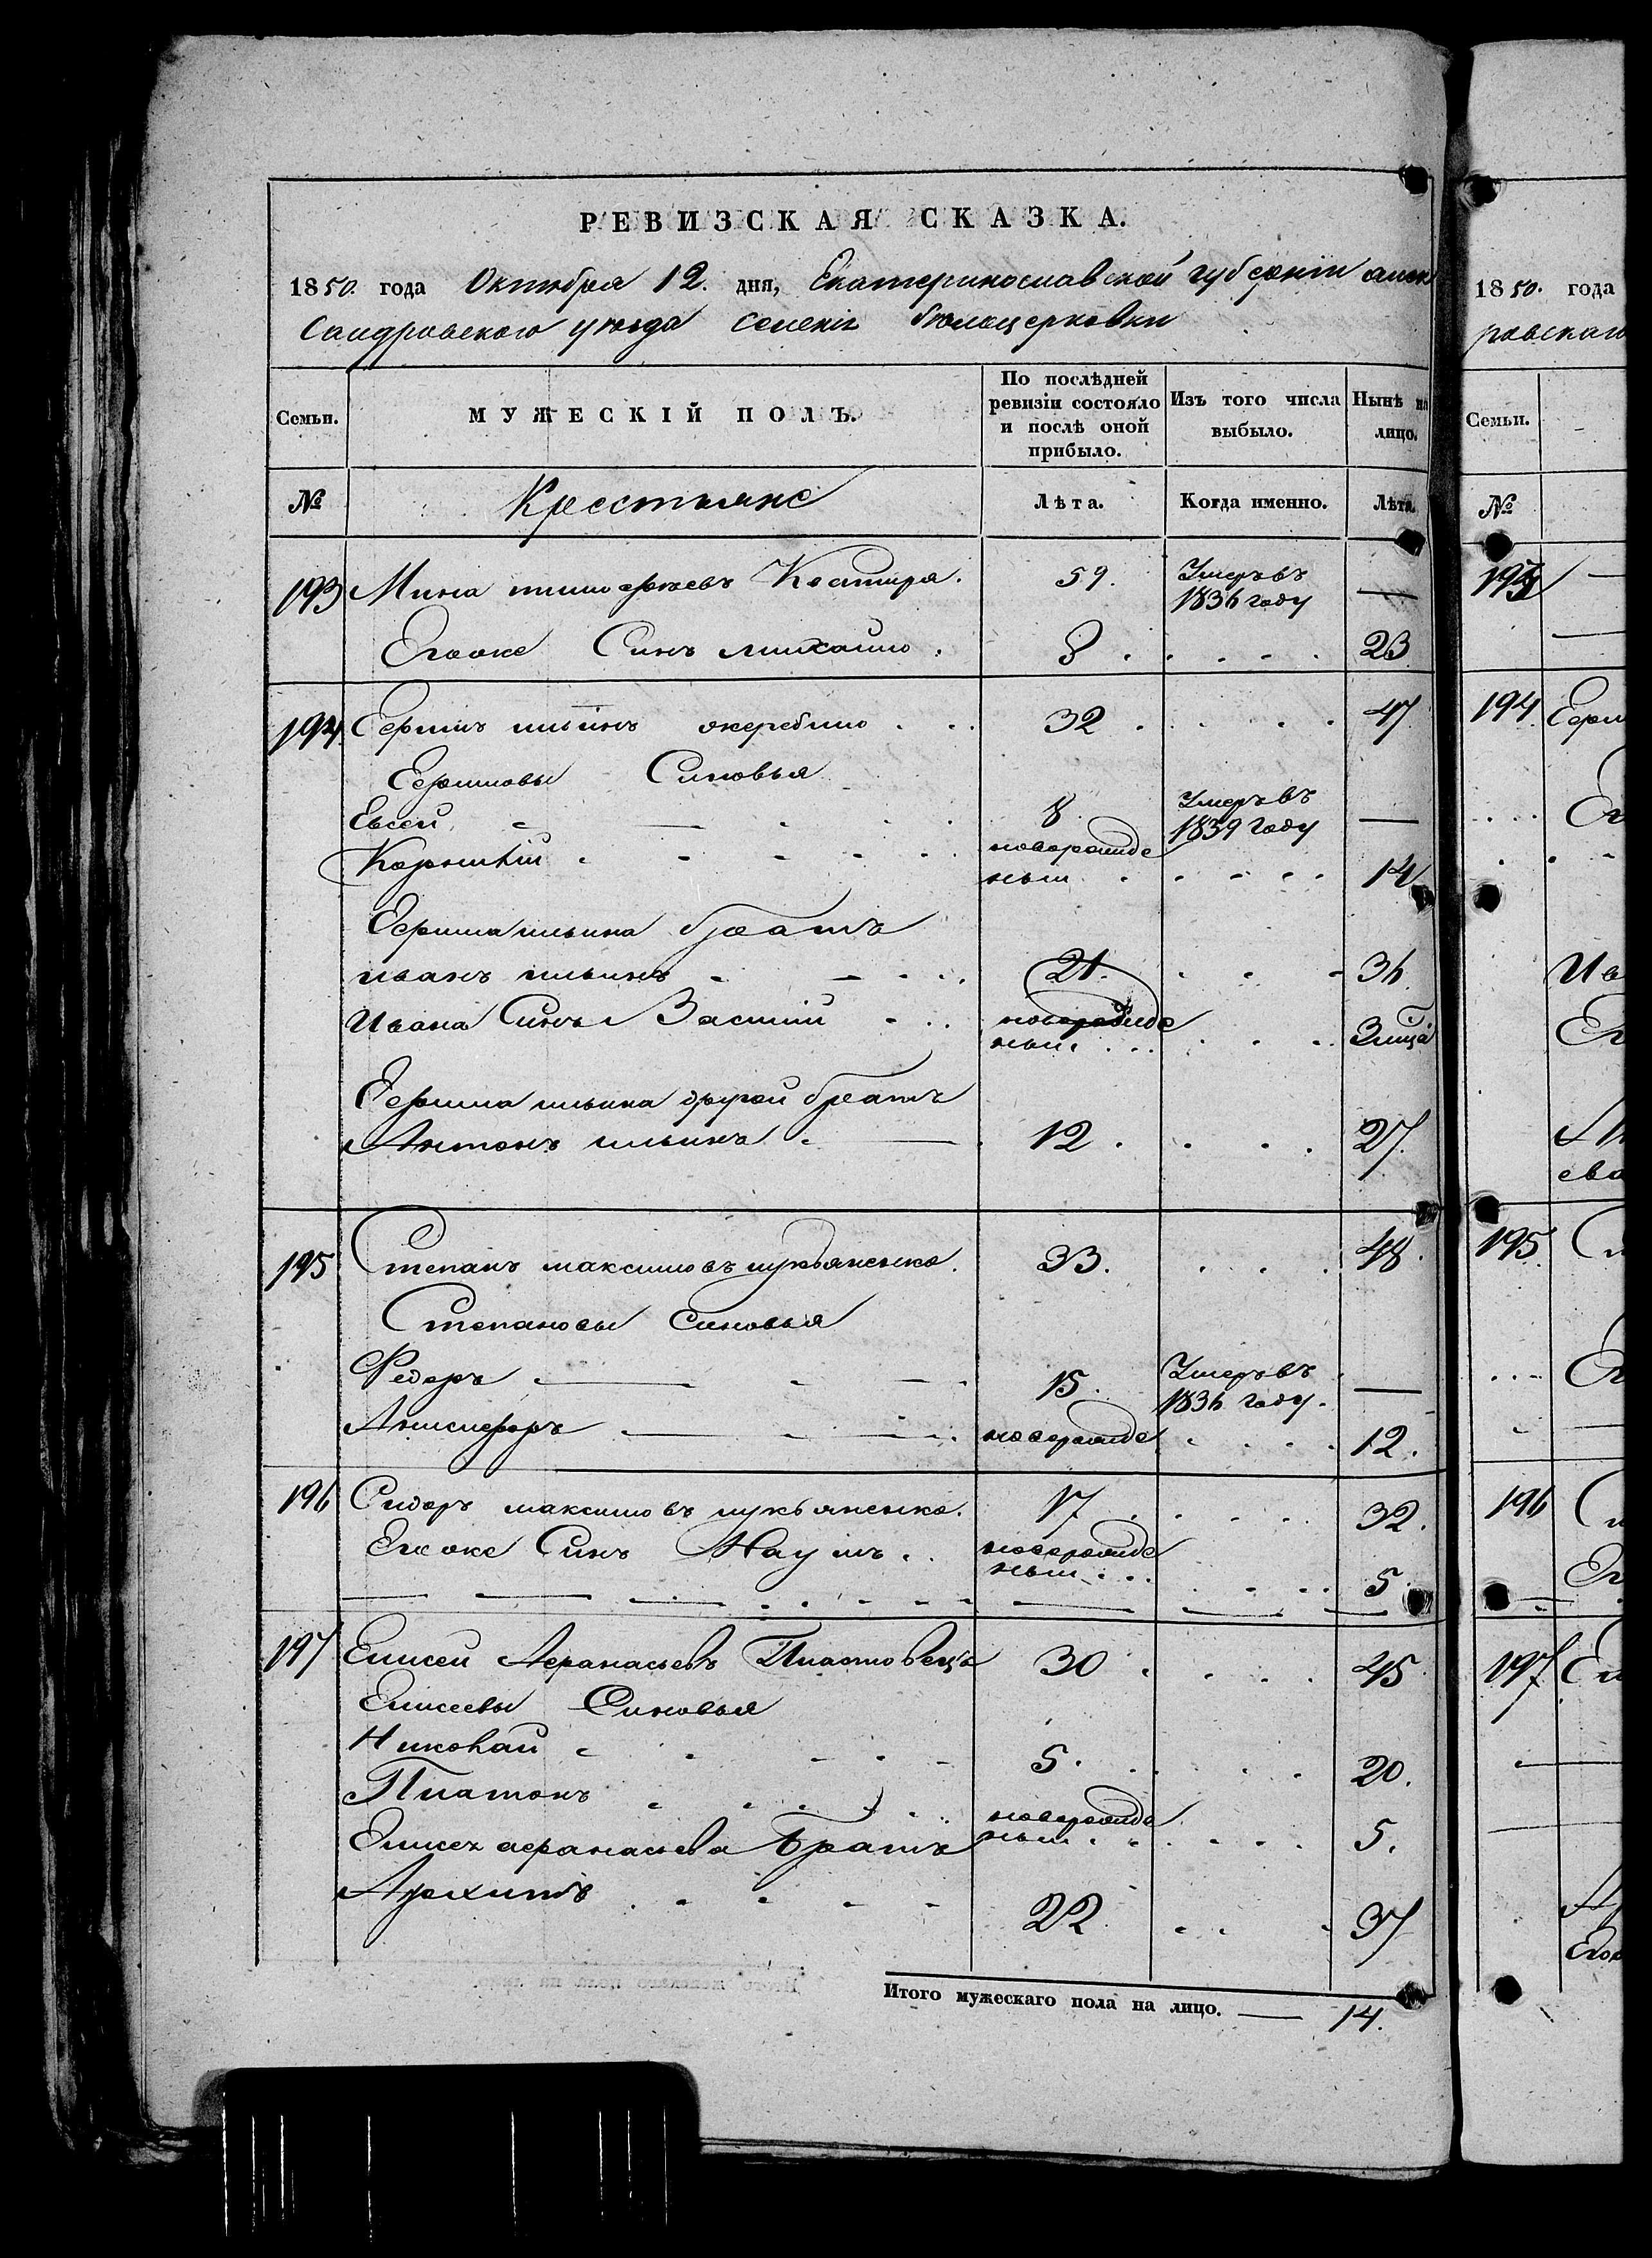 РЕВИЗСКАЯ СКАЗКА.
1850. года Октября 12. дня, Екатеринославской губерніи алек
сандровского уѣзда селенія бѣлоцерковки
Семьи.
МУЖЕСКІЙ ПОЛЪ.
По послѣдней ревизіи состояло и послѣ оной прибыло.
Изъ того числа выбыло.
Нынѣ на лицо.
№
Крестьяне
Лѣта.
Когда именно.
Лѣта.
193 Мина тимофѣевъ Костиря. 59. Умеръ въ 1836 году —
Егоже Синъ михаило. 8 23
194. Ефимъ ильинъ жеребило 32 47
Ефимовы Синовья
Евсей 8. Умеръ въ 1839 году —
Корнилій новорожде ныи 14
Ефима ильина братъ
иванъ ильинъ 21. 36
Ивана Синъ Василий новорожде ныи 3 мца
Ефима ильина другой братъ
Антонъ ильинъ 12 27.
195 Степанъ максимовъ лукьяненко. 33. 48.
Степановы синовья
Федоръ 15. Умеръ въ 1836 году. —
Анисифоръ новорожде 12.
196 Сидоръ максимовъ лукьяненко. 17 32.
Егоже Синъ Наумъ новорожде ныи 5.
197 Елисей Афанасьевъ 30 45
Елисеевы Синовья
Николай 5. 20.
Платонъ новорожде ныи 5.
Елисея афанасьева братъ
Архипъ 22 37
Итого мужескаго пола на лицо. — 14.
1850. года
ровскаго
Семьи.
№
193
194. Ефим
Ив
195.
196
197